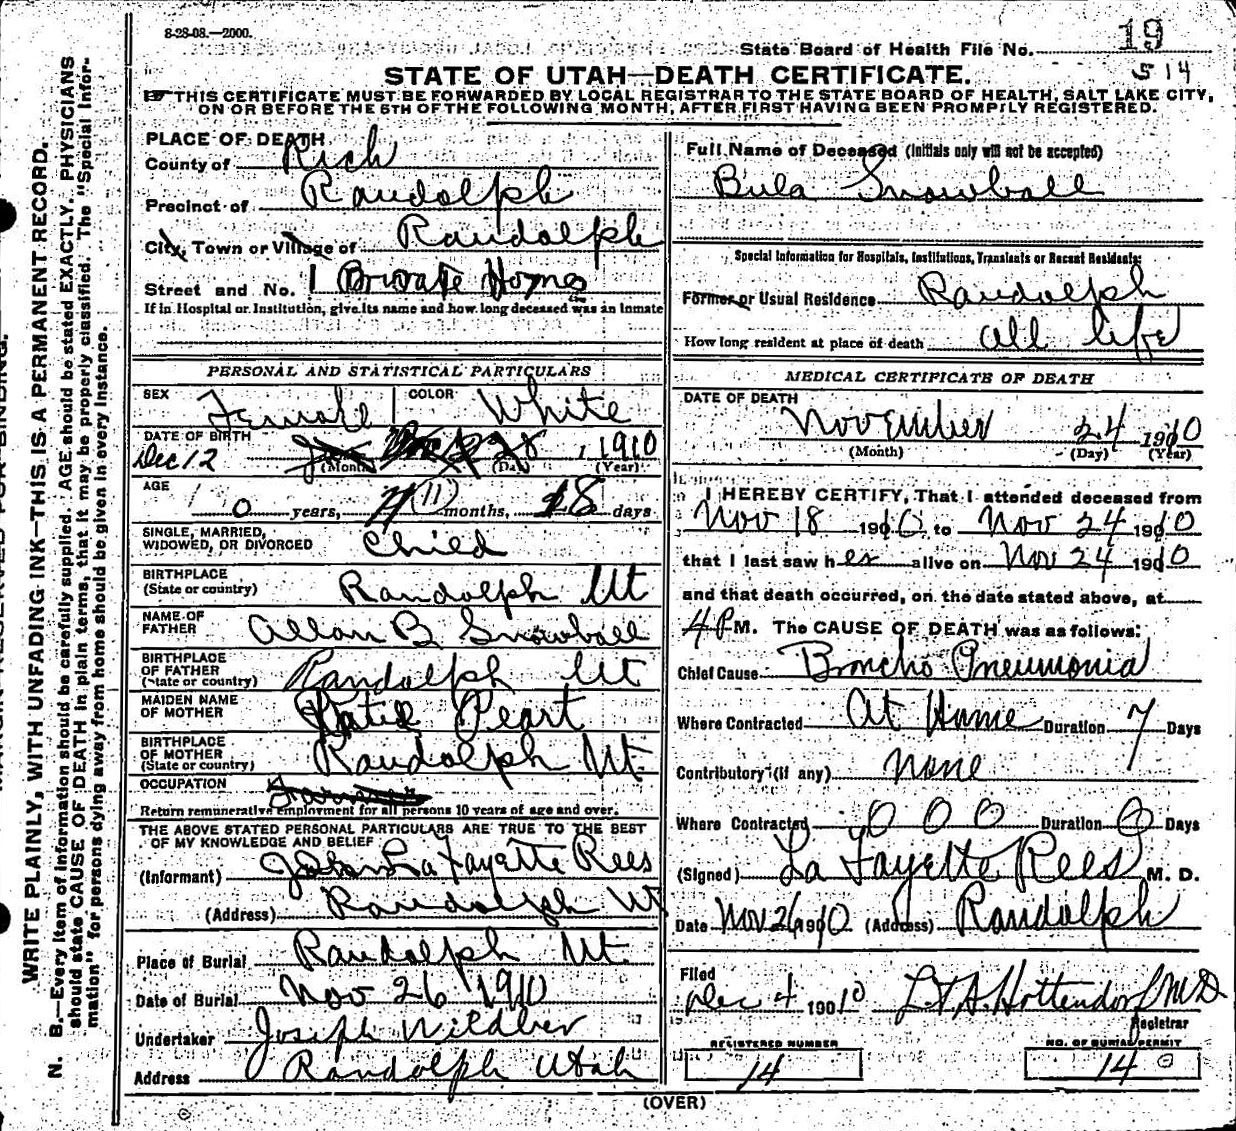 8-28-08.—2000.
State Board of Health File No. 19
S 14
STATE OF UTAH—DEATH CERTIFICATE.
THIS CERTIFICATE MUST BE FORWARDED BY LOCAL REGISTRAR TO THE STATE BOARD OF HEALTH, SALT LAKE CITY,
ON OR BEFORE THE 5TH OF THE FOLLOWING MONTH, AFTER FIRST HAVING BEEN PROMPTLY REGISTERED.
WRITE PLAINLY, WITH UNFADING INK—THIS IS A PERMANENT RECORD.
N. B.—Every item of information should be carefully supplied. AGE should be stated EXACTLY. PHYSICIANS
should state CAUSE OF DEATH in plain terms, that it may be properly classified. The "Special Infor-
mation" for persons dying away from home should be given in every instance.
PLACE OF DEATH
County of Rich
Precinct of Randolph
City, Town or Village of Randolph
Street and No. 1 Private Home
If in Hospital or Institution, give its name and how long deceased was an inmate
PERSONAL AND STATISTICAL PARTICULARS
SEX Female COLOR White
DATE OF BIRTH
Dec 12 28, 1910
(Month) (Day) (Year)
AGE
0 years, 11 months, 18 days
SINGLE, MARRIED,
WIDOWED, OR DIVORCED Child
BIRTHPLACE
(State or country) Randolph Ut
NAME OF
FATHER Allan B Snowball
BIRTHPLACE
OF FATHER
(State or country) Randolph Ut
MAIDEN NAME
OF MOTHER Katie Peart
BIRTHPLACE
OF MOTHER
(State or country) Randolph Ut.
OCCUPATION
Return remunerative employment for all persons 10 years of age and over.
THE ABOVE STATED PERSONAL PARTICULARS ARE TRUE TO THE BEST
OF MY KNOWLEDGE AND BELIEF
(Informant) La Fayette Rees
(Address) Randolph Ut
Place of Burial Randolph Ut.
Date of Burial Nov 26 1910
Undertaker Joseph
Address Randolph Utah
Full Name of Deceased (Initials only will not be accepted)
Bula Snowball
Special Information for Hospitals, Institutions, Transients or Recent Residents:
Former or Usual Residence Randolph
How long resident at place of death all life
MEDICAL CERTIFICATE OF DEATH
DATE OF DEATH
November 24 1910
(Month) (Day) (Year)
I HEREBY CERTIFY, That I attended deceased from
Nov 18 1910 to Nov 24 1910
that I last saw her alive on Nov 24 1910
and that death occurred, on the date stated above, at
4 P M. The CAUSE OF DEATH was as follows:
Chief Cause Broncho Pneumonia
Where Contracted At Home Duration 7 Days
Contributory (if any) none
Where Contracted 0 0 0 Duration 0 Days
(Signed) La Fayette Rees M. D.
Date Nov 26 1910 (Address) Randolph
Filed
Dec 4 1910 Hottendorf MD
Registrar
REGISTERED NUMBER
14
NO. OF BURIAL PERMIT
14
(OVER)